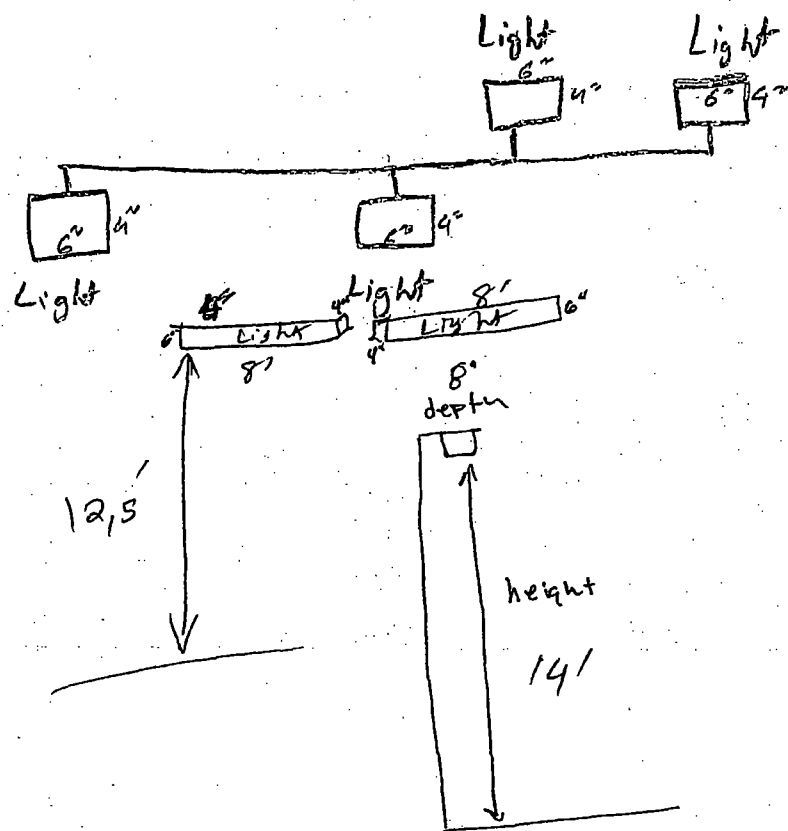 Light Light
6" 4" 6" 4"
6" 4" 6" 4"
Light Light
4" 8'
6" Light 4" Light 6"
8' 4"
8"
depth
12,5'
height
14'